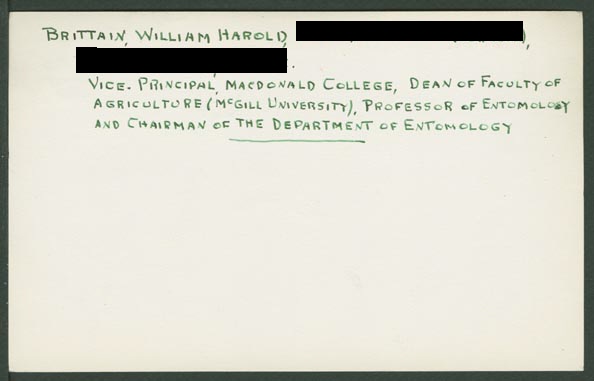 BRITTAIN, WILLIAM HAROLD, ),
.
VICE-PRINCIPAL, MACDONALD COLLEGE, DEAN OF FACULTY OF
AGRICULTURE (McGILL UNIVERSITY), PROFESSOR OF ENTOMOLOGY
AND CHAIRMAN OF THE DEPARTMENT OF ENTOMOLOGY